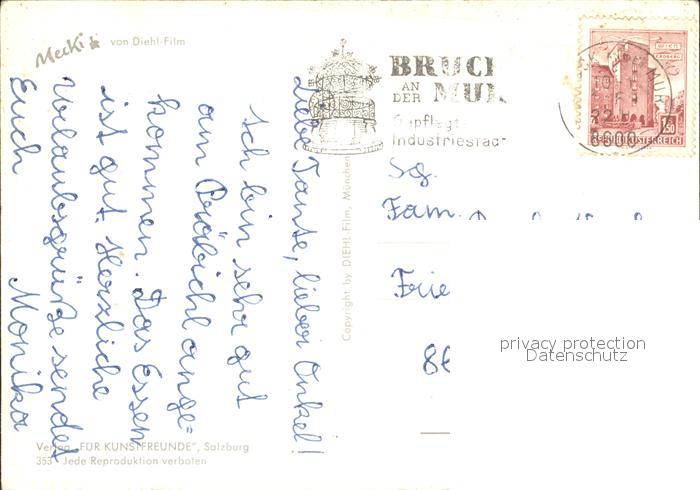 Mecki von Diehl-Film
BRUCK
AN DER MUR
Gepflegte
Industriestadt
8600
REPUBLIK ÖSTERREICH
Liebe Tante, lieber Onkel!
Ich bin sehr gut
am Präbichl ange=
kommen. Das Essen
ist gut. Herzliche
Urlaubsgrüße sendet
Euch Monika
Copyright by DIEHL-Film, München
Sg.
Fam.
Frie
86
privacy protection
Datenschutz
Verlag „FÜR KUNSTFREUNDE", Salzburg
353 Jede Reproduktion verboten